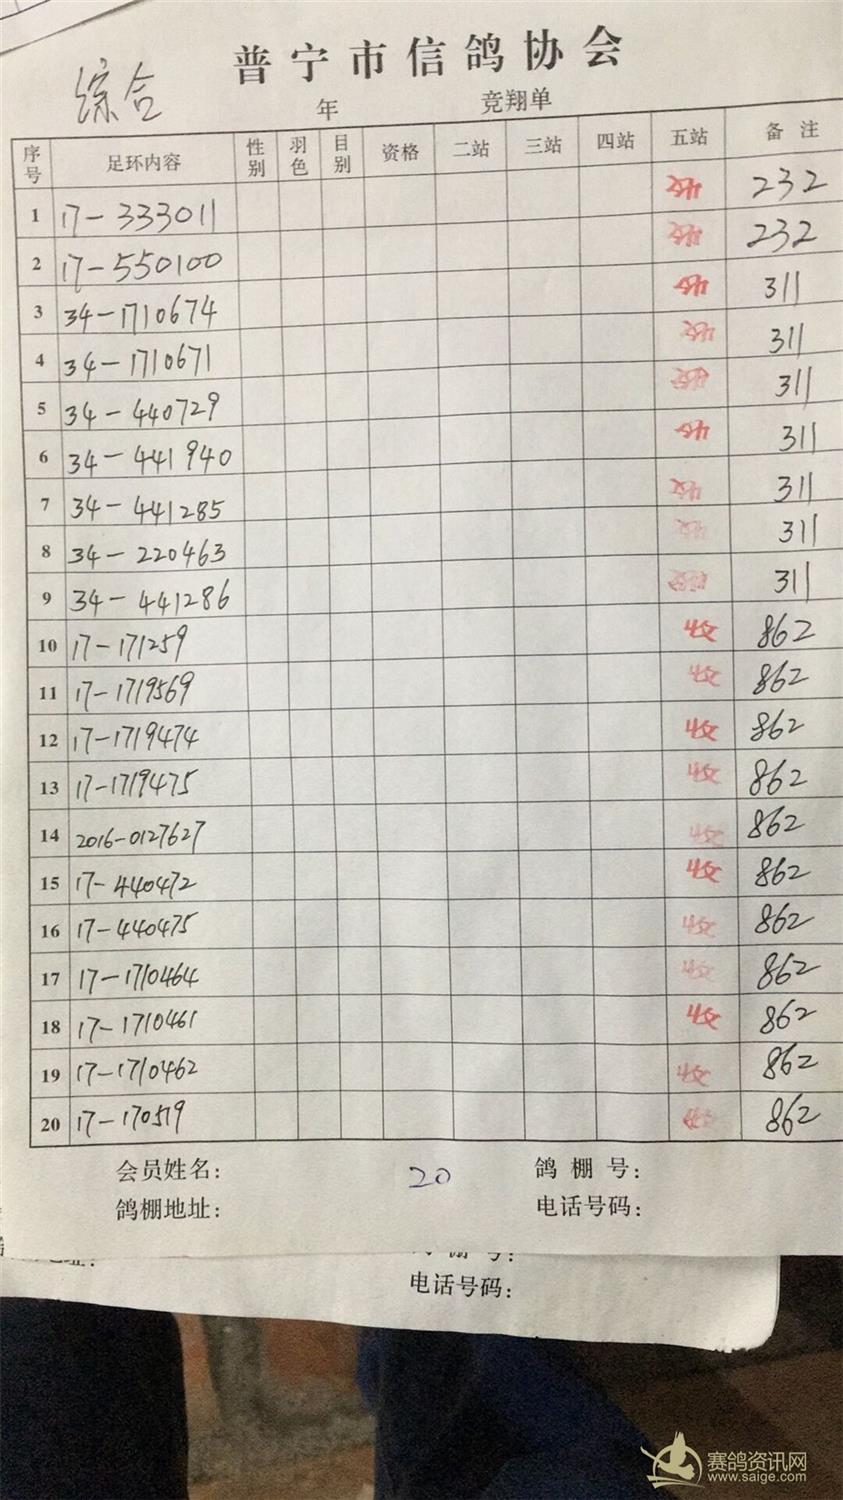 普宁市信鸽协会
综合
年 竞翔单
序号 足环内容 性别 羽色 目别 资格 二站 三站 四站 五站 备注
1 17-333011 收 232
2 17-550100 收 232
3 34-1710674 收 311
4 34-1710671 收 311
5 34-440729 收 311
6 34-441940 收 311
7 34-441285 收 311
8 34-220463 收 311
9 34-441286 收 311
10 17-171259 收 862
11 17-1719569 收 862
12 17-1719474 收 862
13 17-1719475 收 862
14 2016-0127627 收 862
15 17-440472 收 862
16 17-440475 收 862
17 17-1710464 收 862
18 17-1710461 收 862
19 17-1710462 收 862
20 17-170519 收 862
会员姓名: 20 鸽棚号:
鸽棚地址: 电话号码:
电话号码:
赛鸽资讯网
www.saige.com